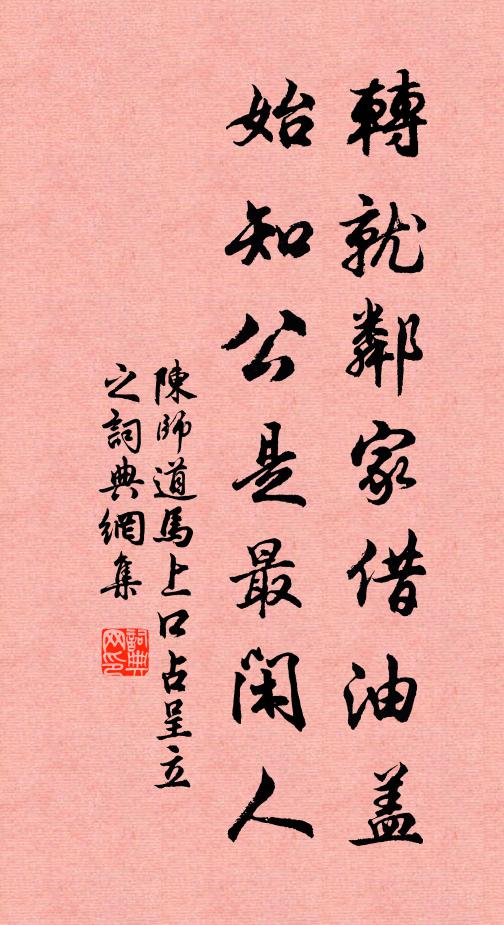 轉就鄰家借油盖
始知公是最閑人
陳師道馬上口占呈立
之詞典網集
詞典
网印